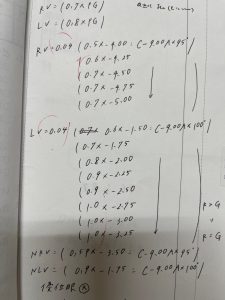 RV = (0.7×PG
LV = (0.8×PG
RV = 0.04 (0.5×-4.00 : C-9.00A×95°
(0.6×-4.25
(0.7×-4.50
(0.7×-4.75
(0.7×-5.00
LV = 0.04 (0.6×-1.50 : C-9.00A×100°
(0.7×-1.75
(0.8×-2.00
(0.9×-2.25
(0.9×-2.50
(1.0×-2.75
(1.0×-3.00
(1.0×-3.25
R>G
R=G
NRV = (0.5p×-3.50 : C-9.00A×95°
NLV = (0.9×-1.75 : C-9.00A×100°